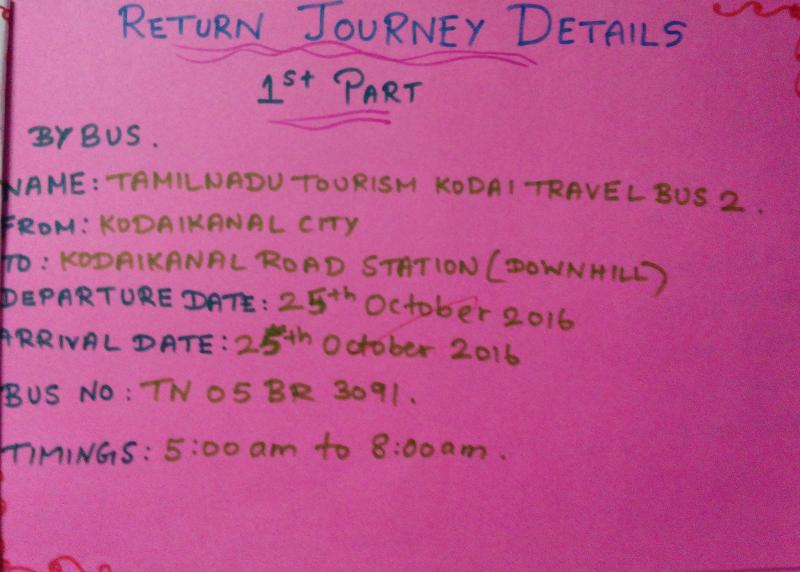 RETURN JOURNEY DETAILS
1st PART
BY BUS.
NAME: TAMILNADU TOURISM KODAI TRAVEL BUS 2.
FROM: KODAIKANAL CITY
TO: KODAIKANAL ROAD STATION (DOWNHILL)
DEPARTURE DATE: 25th October 2016
ARRIVAL DATE: 25th October 2016
BUS NO: TN 05 BR 3091.
TIMINGS: 5:00 am to 8:00 am.